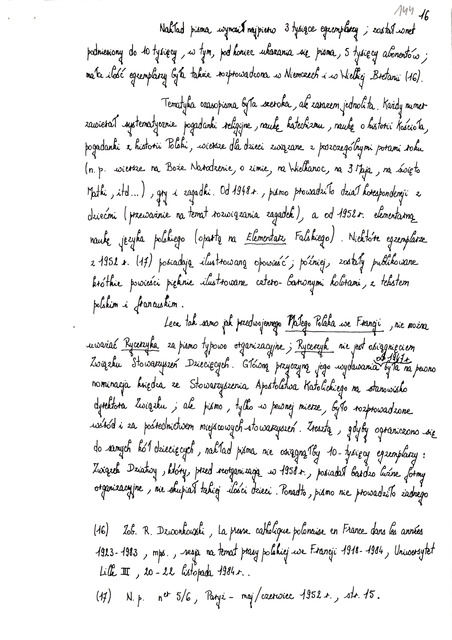 144 16
Nakład pisma wynosił najpierw 3 tysiące egzemplarzy ; został wnet
podniesiony do 10 tysięcy, w tym, pod koniec ukazania się pisma, 5 tysięcy abonentów ;
mała ilość egzemplarzy była także rozprowadzona w Niemczech i w Wielkiej Bretanii (16).
Tematyka czasopisma była szeroka, ale zarazem jednolita. Każdy numer
zawierał systematycznie pogadanki religijne, naukę katechizmu, naukę o historii Kościoła,
pogadanki z historii Polski, wiersze dla dzieci związane z poszczególnymi porami roku
(n.p. wiersze na Boże Narodzenie, o zimie, na Wielkanoc, na 3 Maja, na święto
Matki, itd...), gry i zagadki. Od 1948 r., pismo prowadziło dział korespondencji z
dziećmi (przeważnie na temat rozwiązania zagadek), a od 1952 r. elementarną
naukę języka polskiego (opartą na Elementarz Falskiego). Niektóre egzemplarze
z 1952 r. (17) posiadają ilustrowaną opowieść ; później, zostały publikowane
krótkie powieści pięknie ilustrowane cztero-barwnymi kolorami, z tekstem
polskim i francuskim.
Lecz tak samo jak przedwojennego Małego Polaka we Francji, nie można
uważać Rycerzyka za pismo typowo organizacyjne ; Rycerzyk nie jest osiągnięciem
Związku Stowarzyszeń Dziecięcych. Główną przyczyną jego wydawania od 1947 r. była na pewno
nominacja księdza ze Stowarzyszenia Apostolstwa Katolickiego na stanowisko
dyrektora Związku ; ale pismo, tylko w pewnej mierze, było rozprowadzone
wśród i za pośrednictwem miejscowych stowarzyszeń. Zresztą, gdyby ograniczono się
do samych kół dziecięcych, nakład pisma nie osiągnąłby 10-tysięcy egzemplarzy :
Związek Dziatwy, który, przed reorganizacją w 1958 r., posiadał bardzo luźne formy
organizacyjne, nie skupiał takiej ilości dzieci. Ponadto, pismo nie prowadziło żadnego
(16) Zob. R. Dzwonkowski, La presse catholique polonaise en France dans les années
1923-1983, mps., sesja na temat prasy polskiej we Francji 1918-1984, Uniwersytet
Lille III, 20-22 listopada 1984 r..
(17) N.p. nr 5/6, Paryż - maj/czerwiec 1952 r., str. 15.